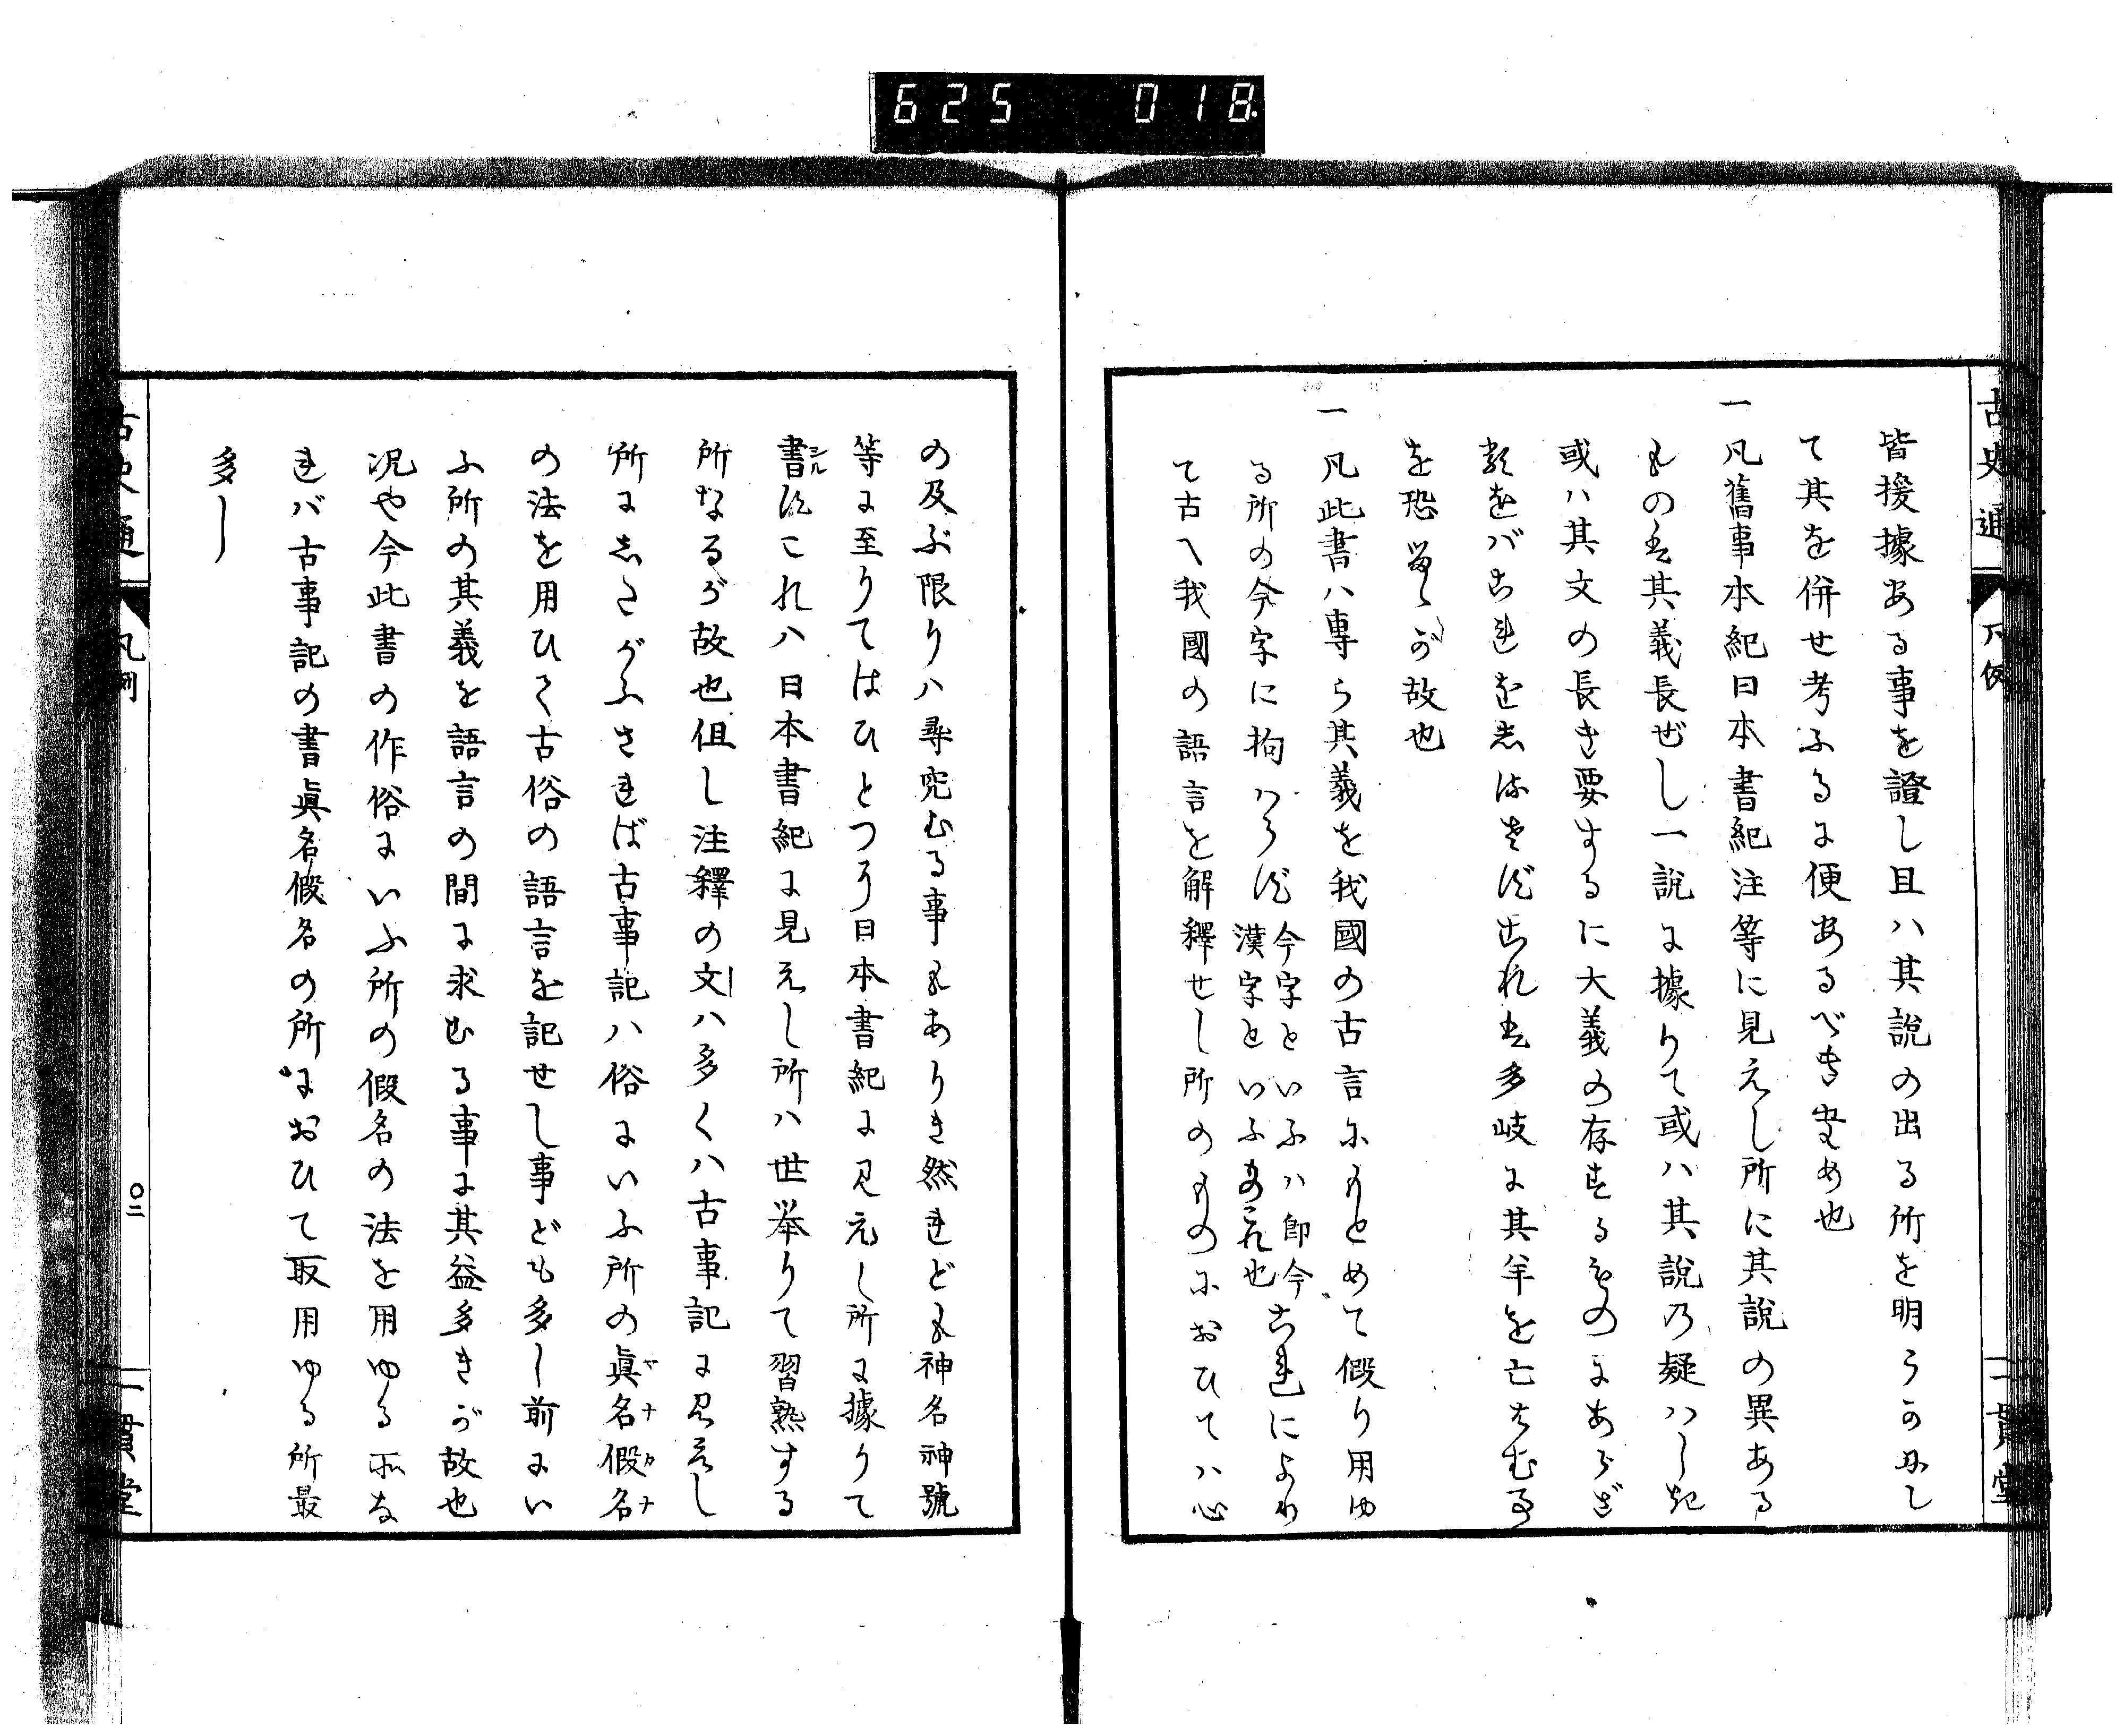 625 018
古史通 凡例 一貫堂
皆援據ある事を證し且ハ其說の出る所を明らかにし
て其を併せ考ふるに便あるべき為め也
一凡舊事本紀日本書紀注等に見えし所に其說の異ある
もの其義長ぜし一說に據りて或ハ其說の疑ハしき
或ハ其文の長き要するに大義の存するものにあらざ
るをバこれをしるさずこれ多岐に其羊を亡はむ事
を恐るゝが故也
一凡此書ハ專ら其義を我國の古言にもとめて假り用ゆ
る所の今字に拘ハらず
今字といふハ即今
漢字といふもの是也
これによりて古へ我國の語言を解釋せし所のものにおひてハ心
の及ぶ限りハ尋究むる事もありき然れども神名神號
等に至りてはひとつり日本書紀に見えし所に據りて
書シルすこれハ日本書紀に見えし所ハ世举りて習熟する
所なるが故也但し注釋の文ハ多くハ古事記に見えし
所にしたがふされば古事記ハ俗にいふ所の眞名假名マナカナ
の法を用ひて古俗の語言を記せし事ども多し前にい
ふ所の其義を語言の間に求むる事に其益多きが故也
况や今此書の作俗にいふ所の假名の法を用ゆる所な
れバ古事記の書眞名假名の所におひて取用ゆる所最
多し
古史通 凡例 〇二 一貫堂